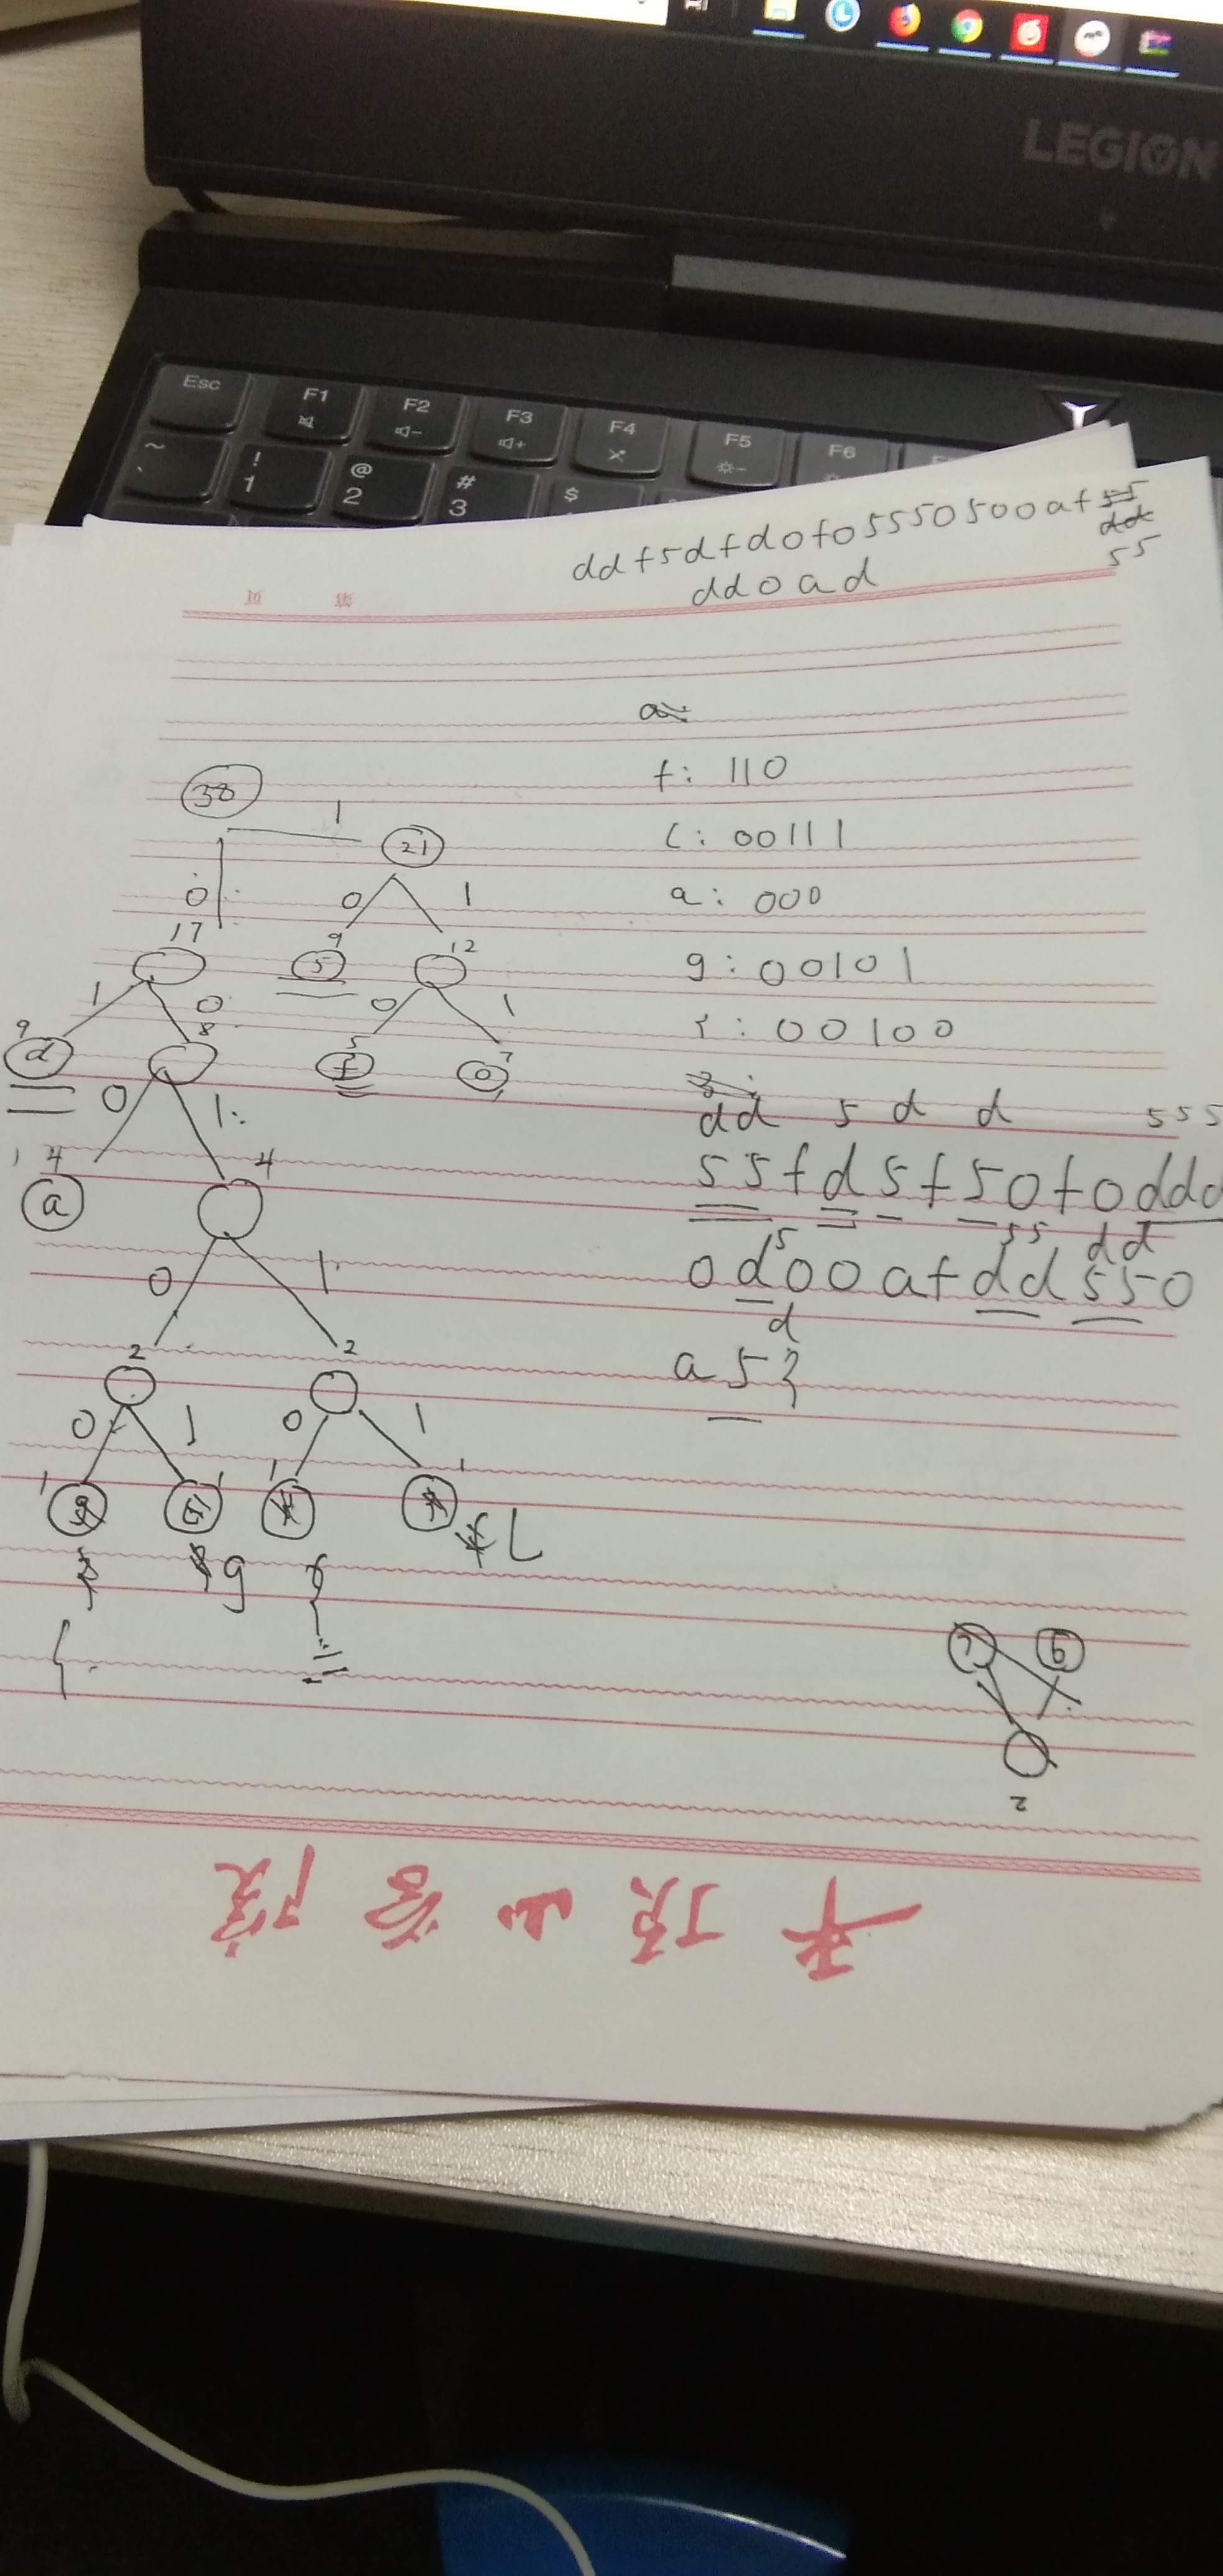 LEGION
Esc F1 F2 F3 F4 F5 F6
~ ! @ # $
` 1 2 3
ddf5dfdofo5550500af
55
ddoad
f: 110
l: 00111
a: 000
g: 00101
{: 00100
38
1
21
0
0 1
17 9 12
5
1 0 0 1
9 8 5 7
d f o
0 1
4 4
a
0 1
2 2
0 1 0 1
1 1 1 1
g { L
{
dd 5 d d 555
55fd5f50foddd
5 55 dd
od00afdd550
d
a5}
7 6
2
平顶山学院